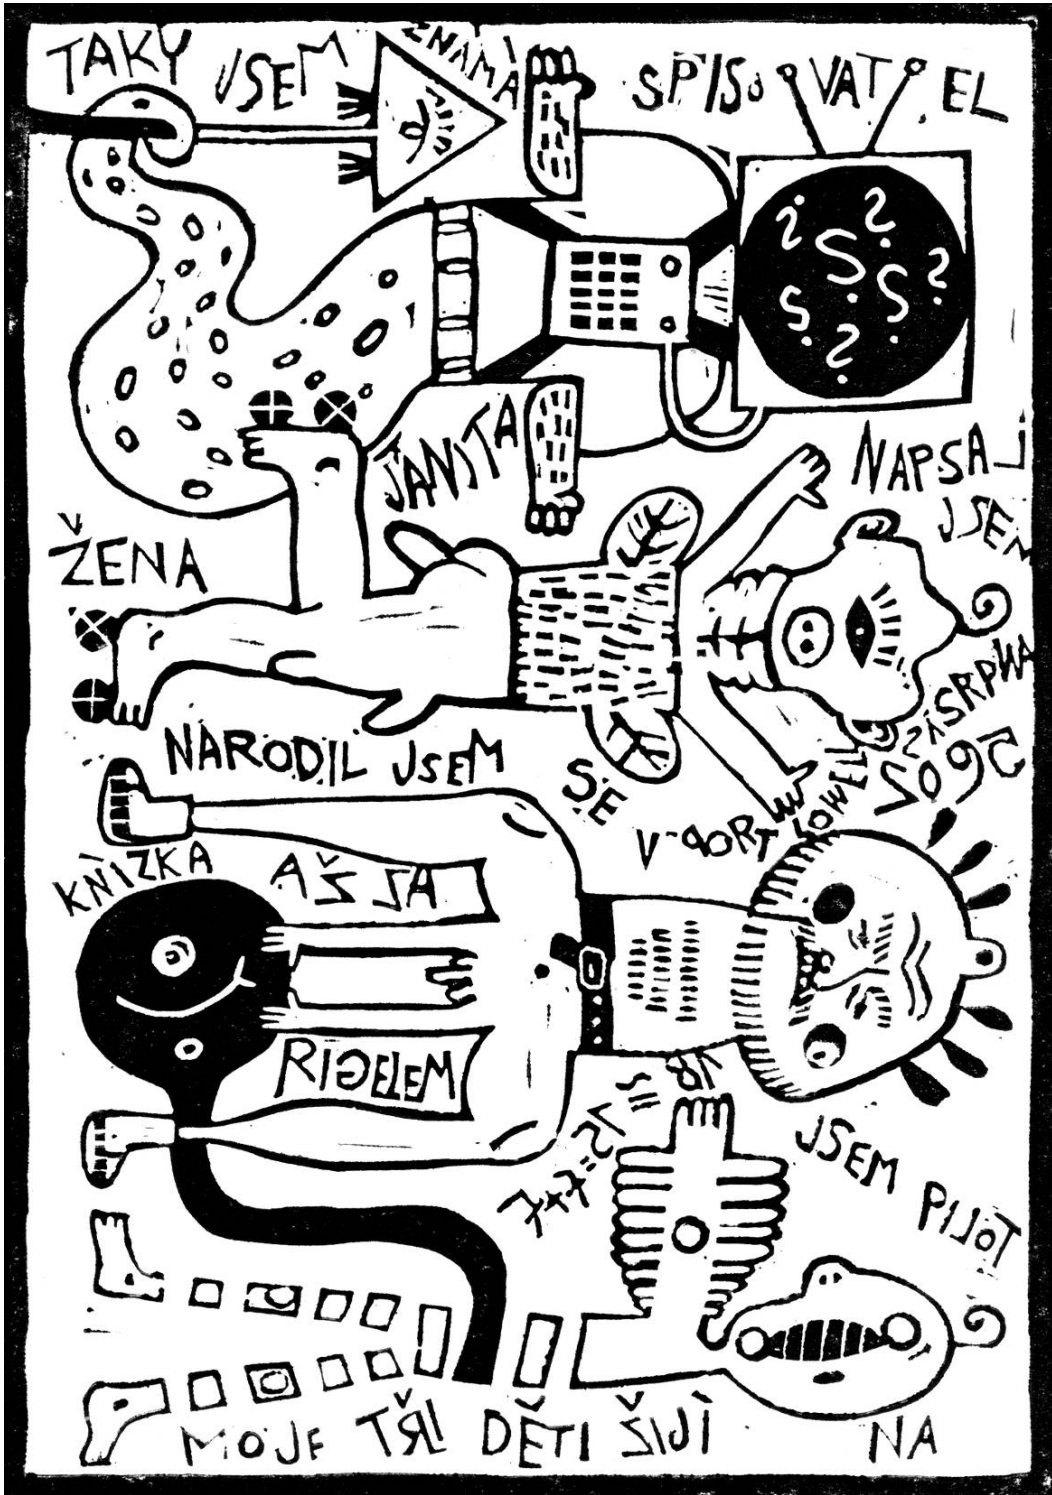 TAKY JSEM
ZNÁMÁ
SPISOVATEL
JANITA
NAPSAL
JSEM
ŽENA
SRPNA
NARODIL JSEM
SE
KNÍŽKA
AŽ ZA
RIGELEM
7+7=15
JSEM PILOT
MOJE TŘI DĚTI ŽIJÍ
NA